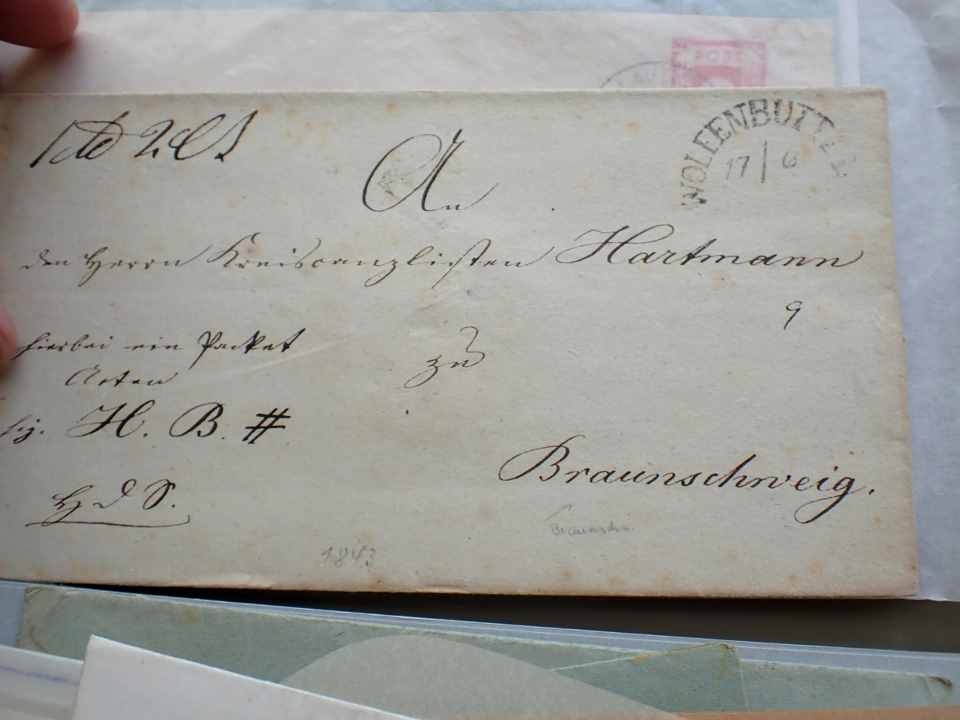 WOLFENBUTTEL
17/6
An
den Herrn Kreiscanzlisten Hartmann
9
hierbei ein Packet
Acten
sig. H. B. #
zu
H d S.
Braunschweig.
Braunschw.
1843
POST